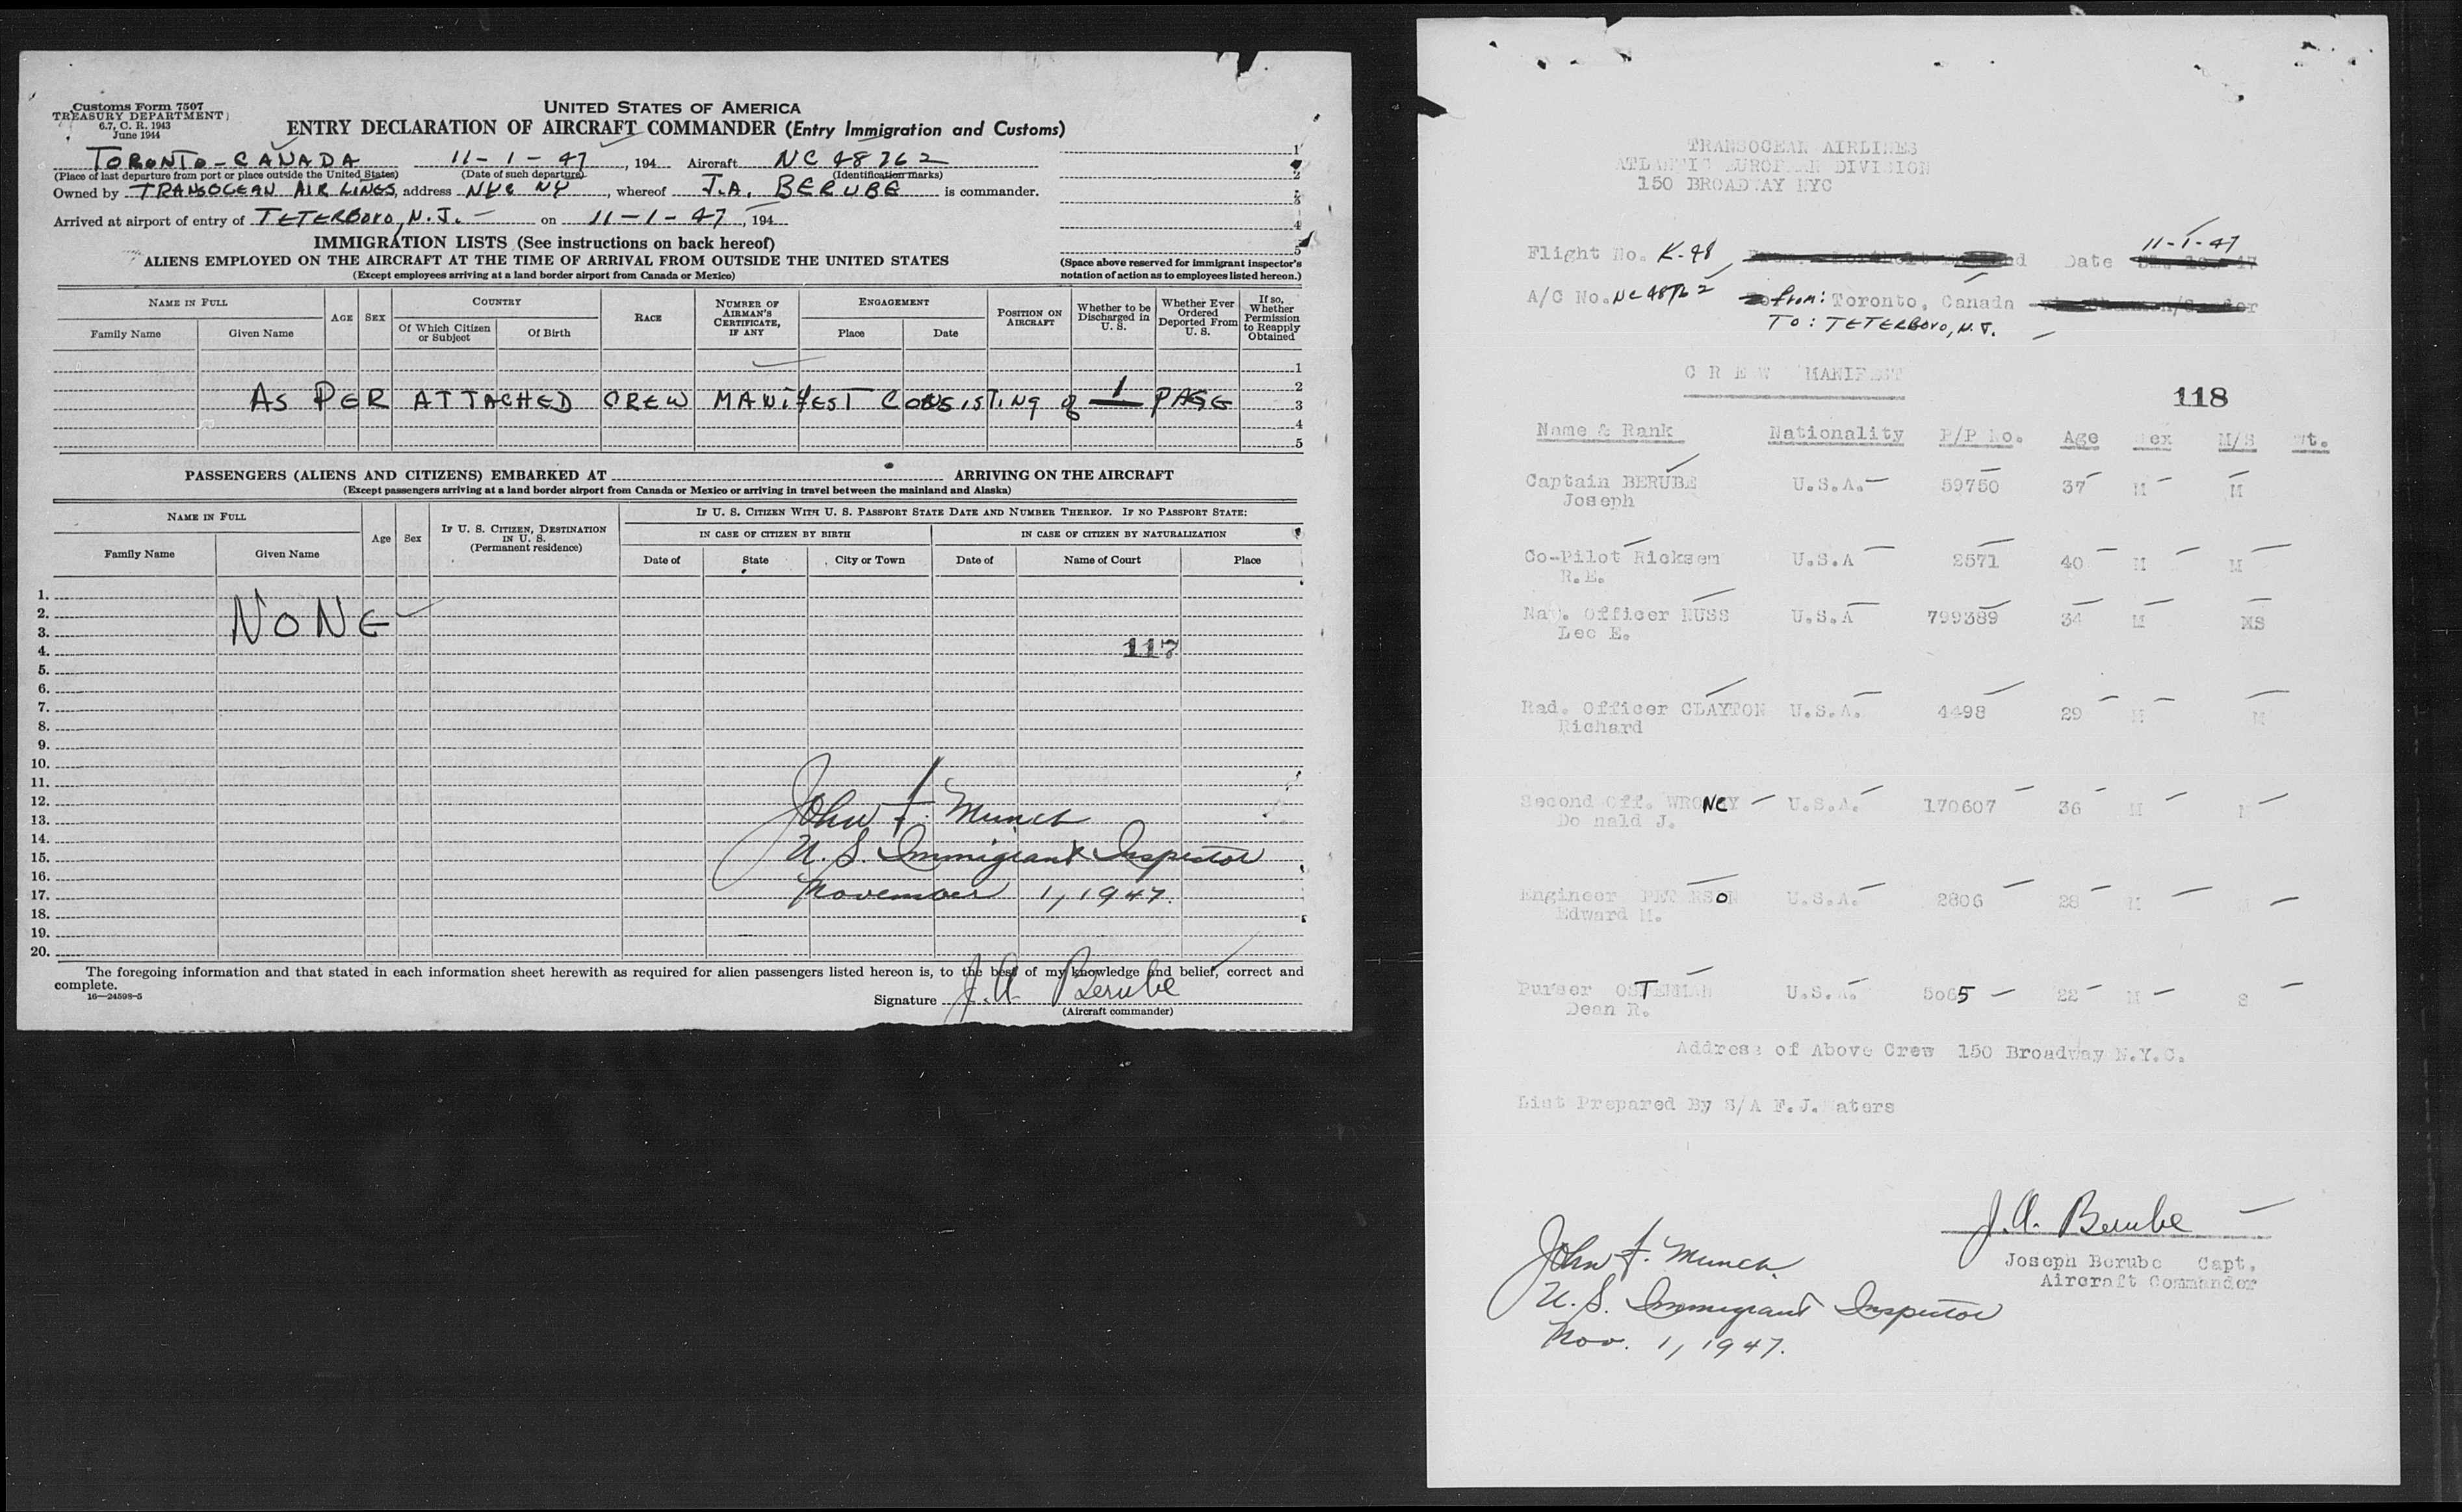 Customs Form 7507
TREASURY DEPARTMENT
6.7, C. R. 1943
June 1944
UNITED STATES OF AMERICA
ENTRY DECLARATION OF AIRCRAFT COMMANDER (Entry Immigration and Customs)
TORONTO - CANADA 11-1-47, 194 Aircraft NC 48762
(Place of last departure from port or place outside the United States) (Date of such departure) (Identification marks)
Owned by TRANSOCEAN AIR LINES, address NYC NY, whereof J.A. BERUBE is commander.
Arrived at airport of entry of TETERBORO, N.J. - on 11-1-47, 194
1
2
3
4
5
IMMIGRATION LISTS (See instructions on back hereof)
ALIENS EMPLOYED ON THE AIRCRAFT AT THE TIME OF ARRIVAL FROM OUTSIDE THE UNITED STATES
(Except employees arriving at a land border airport from Canada or Mexico)
(Space above reserved for immigrant inspector's notation of action as to employees listed hereon.)
NAME IN FULL AGE SEX COUNTRY RACE NUMBER OF AIRMAN'S CERTIFICATE, IF ANY ENGAGEMENT POSITION ON AIRCRAFT Whether to be Discharged in U. S. Whether Ever Ordered Deported From U. S. If so, Whether Permission to Reapply Obtained
Family Name Given Name Of Which Citizen or Subject Of Birth Place Date
1
2
AS PER ATTACHED CREW MANIFEST CONSISTING of 1 PAGE 3
4
5
PASSENGERS (ALIENS AND CITIZENS) EMBARKED AT ARRIVING ON THE AIRCRAFT
(Except passengers arriving at a land border airport from Canada or Mexico or arriving in travel between the mainland and Alaska)
NAME IN FULL Age Sex IF U. S. CITIZEN, DESTINATION IN U. S. (Permanent residence) IF U. S. CITIZEN WITH U. S. PASSPORT STATE DATE AND NUMBER THEREOF. IF NO PASSPORT STATE:
IN CASE OF CITIZEN BY BIRTH IN CASE OF CITIZEN BY NATURALIZATION
Family Name Given Name Date of State City or Town Date of Name of Court Place
1.
2.
NONE
3.
4. 117
5.
6.
7.
8.
9.
10.
11.
12.
13. John F. Munch
14.
15. U. S. Immigrant Inspector
16.
17. November 1, 1947.
18.
19.
20.
The foregoing information and that stated in each information sheet herewith as required for alien passengers listed hereon is, to the best of my knowledge and belief, correct and
complete.
16—24598-5
Signature J.A. Berube
(Aircraft commander)
TRANSOCEAN AIRLINES
ATLANTIC EUROPEAN DIVISION
150 BROADWAY NYC
11-1-47
Flight No. K-48 Date
A/C No. NC 48762 from: Toronto, Canada
TO: TETERBORO, N.J.
CREW MANIFEST
118
Name & Rank Nationality P/P No. Age Sex M/S Wt.
Captain BERUBE U.S.A. 59750 37 M M
Joseph
Co-Pilot Ricksem U.S.A 2571 40 M M
R.E.
Nav. Officer NUSS U.S.A 799389 34 M MS
Leo E.
Rad. Officer CLAYTON U.S.A. 4498 29 M M
Richard
Second Off. U.S.A. 170607 36 M M
Do nald J.
Engineer PETERSON U.S.A. 2806 28 M
Edward M.
Purser U.S.A. 5065 22 M S
Dean R.
Address of Above Crew 150 Broadway N.Y.C.
List Prepared By S/A F.J. Waters
J.A. Berube
Joseph Berube Capt.
Aircraft Commander
John F. Munch.
U. S. Immigrant Inspector
Nov. 1, 1947.